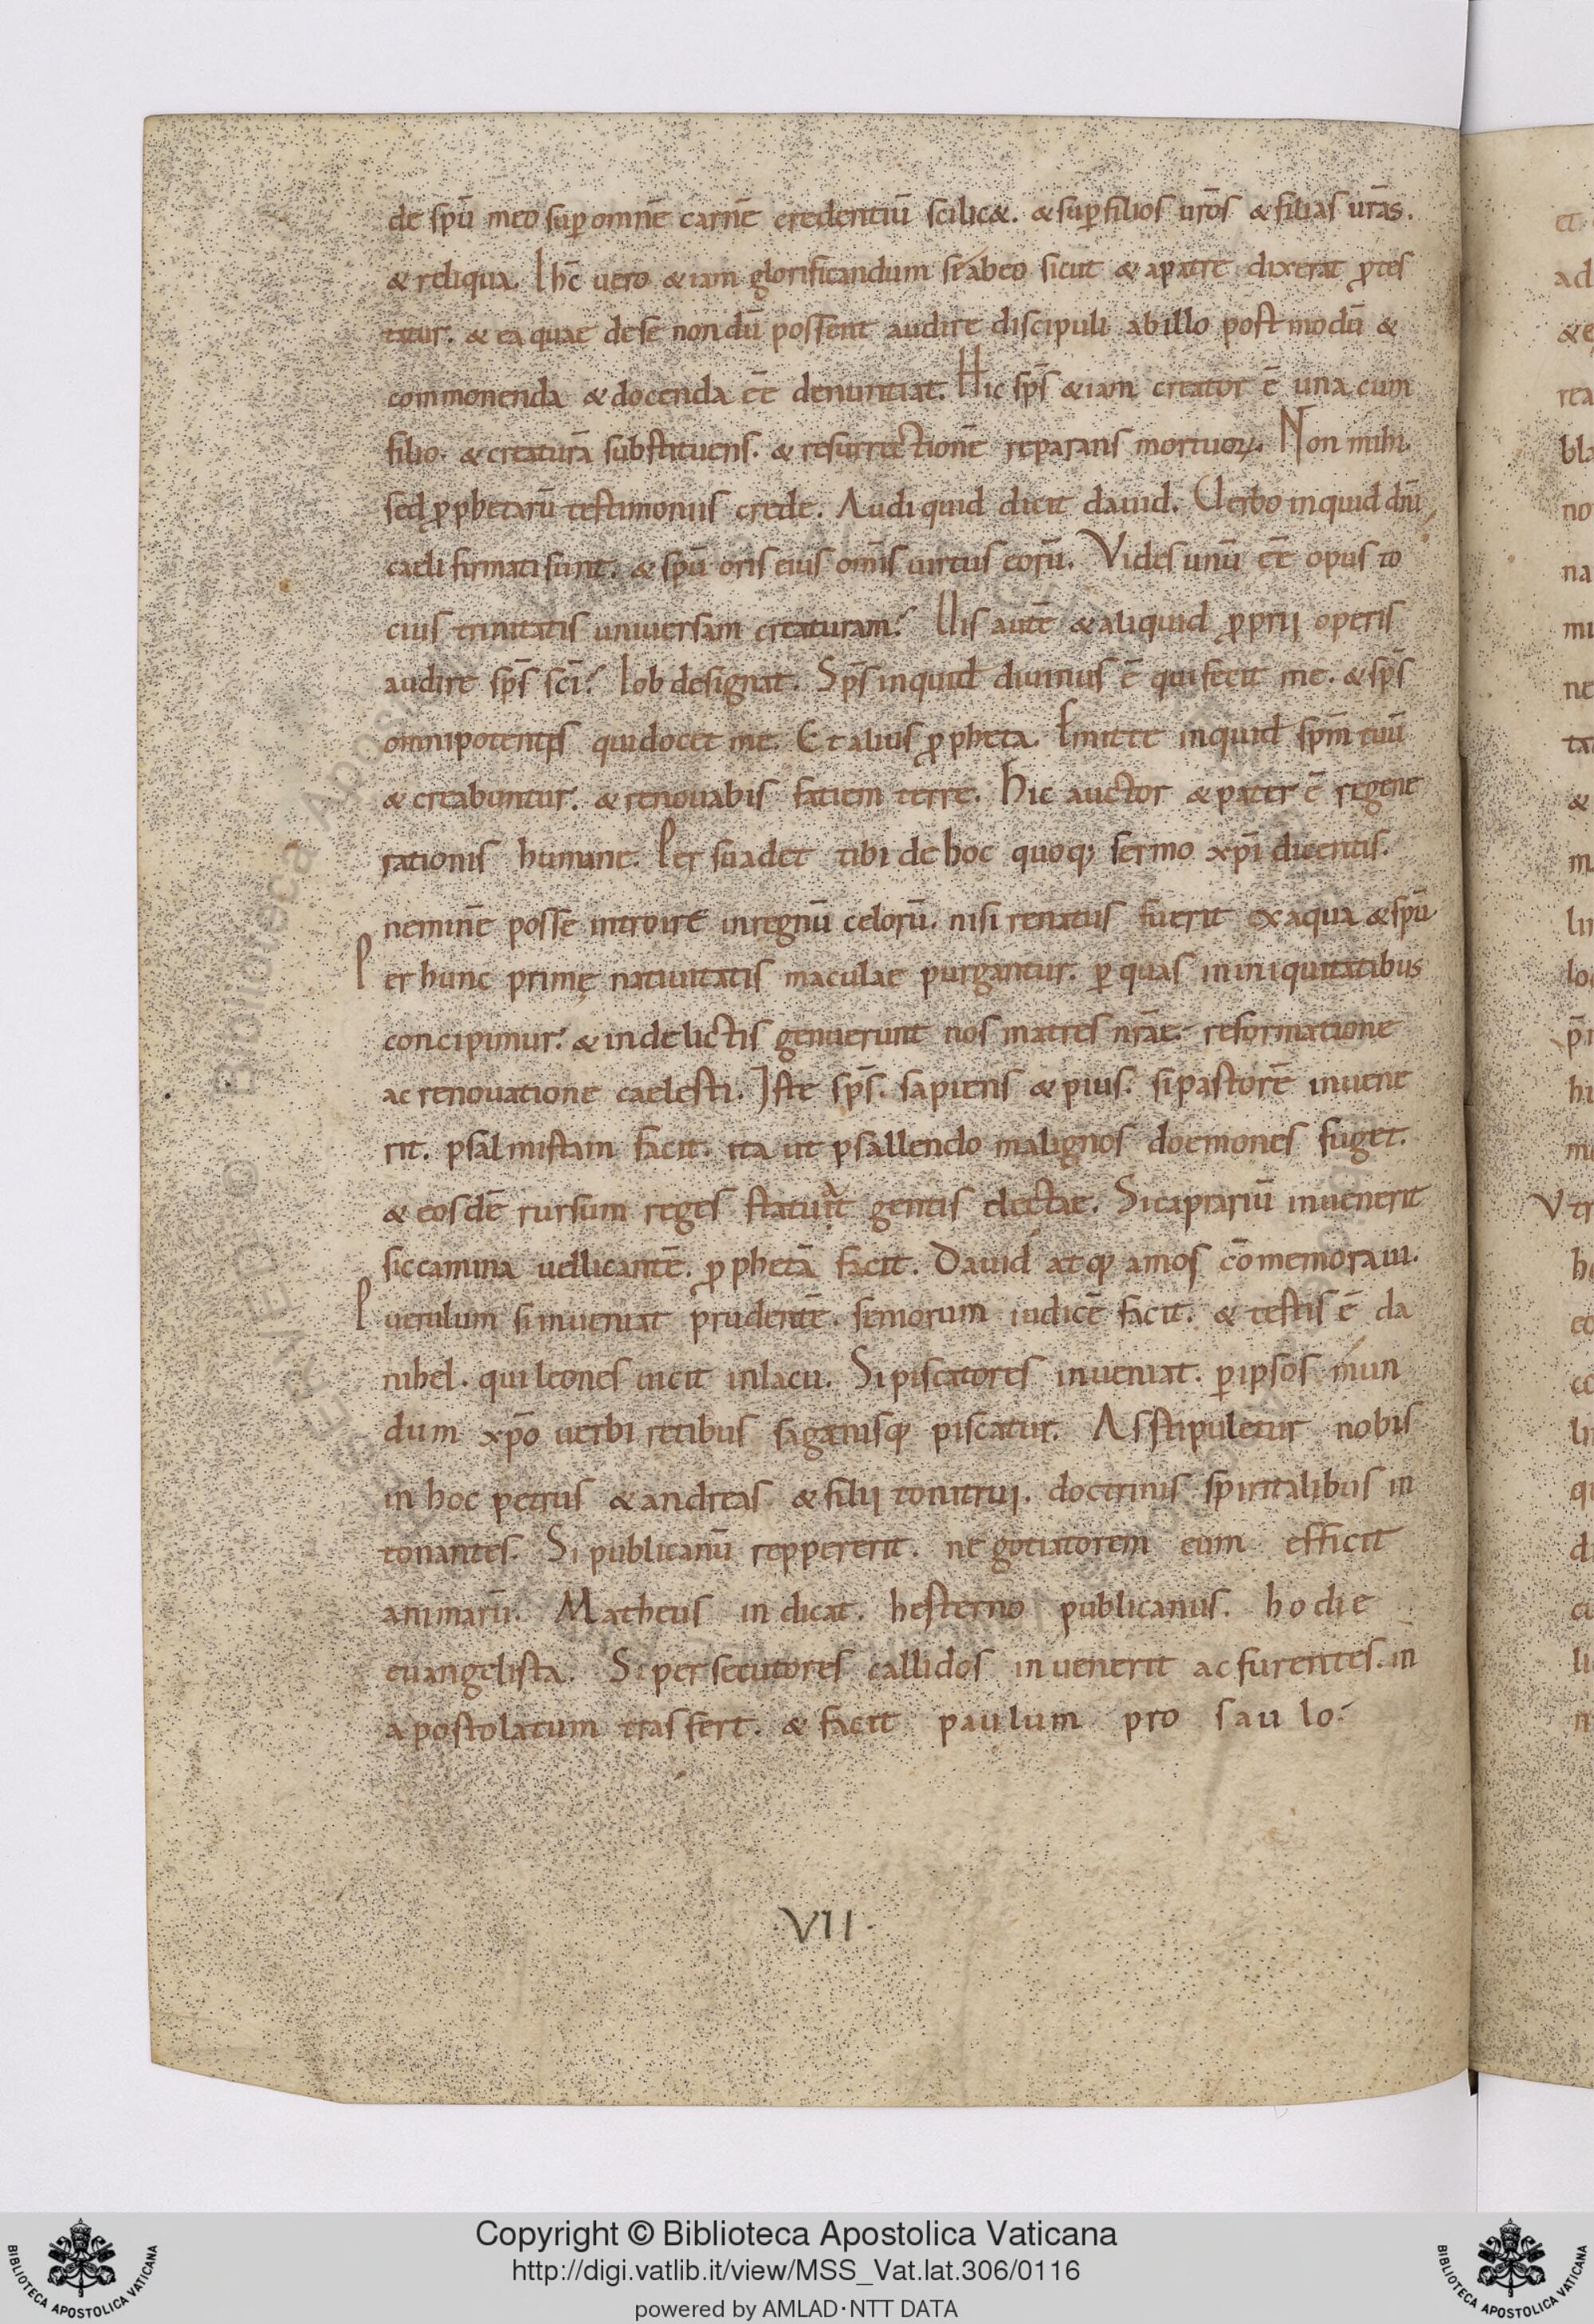 de spū meo sup omnē carnē credentiū scilic&. & sup filios ur̄os & filias ur̄as.
& reliqua. Ihc̄ uero &iam glorificandum se abeo sicut & apatre dixerat p̱tes
tatur. & ea quae dese nondū possent audire discipuli abillo postmodū &
commonenda & docenda eē denuntiat. Hic sps̄ &iam creator ē una cum
filio. & creaturā substituens. & resurrectionē reparans mortuoꝝ. Non mihi
sed ꝓphetarū testimoniis crede. Audi quid dicit dauid. Uerbo inquid dn̄i
caeli firmati sunt. & spū oris eius omīs uirtus eorū. Vides unū eē opus to
cius trinitatis uniuersam creaturam. Uis autē & aliquid ꝓprij operis
audire sps̄ sc̄i. Iob designat. Sps̄ inquid diuinus ē qui fecit me. & sps̄
omnipotentis qui docet me. Et alius ꝓpheta. Emitte inquid spm̄ tuū
& creabuntur. & renouabis fatiem terre. Hic auctor & pater ē regene
rationis humane. Per suadet tibi de hoc quoq; sermo xp̄i dicentis.
neminē posse introire inregnū celorū. nisi renatus fuerit ex aqua & spū
Per hunc primę natiuitatis maculae purgantur. ꝑ quas in iniquitatibus
concipimur. & in delictis genuerunt nos matres nr̄ae. reformatione
ac renouatione caelesti. Iste sps̄. sapiens & pius. si pastorē inuene
rit. psalmistam facit. ita ut psallendo malignos doemones fuget.
& eosdē rursum reges statuat gentis electae. Sicaprariū inuenerit
siccamina uellicantē. ꝓphetā facit. Dauid atq; amos cōmemoraui.
Puerulum si inueniat prudentē. seniorum iudicē facit. & testis ē da
nihel. qui leones uicit inlacu. Si piscatores inueniat. ꝑ ipsos mun
dum xp̄o uerbi retibus sagenisq; piscatur. Asstipuletur nobis
in hoc petrus & andreas & filij tonitrui. doctrinis spiritalibus in
tonantes. Si publicanū reppererit. negotiatorem eum efficit
animarū. Matheus indicat. hesterno publicanus. hodie
euangelista. Si persecutores callidos inuenerit ac furentes. in
apostolatum trasfert. & facit paulum pro saulo.
·VII·
Copyright © Biblioteca Apostolica Vaticana
http://digi.vatlib.it/view/MSS_Vat.lat.306/0116
powered by AMLAD·NTT DATA
BIBLIOTECA APOSTOLICA VATICANA
BIBLIOTECA APOSTOLICA VATICANA